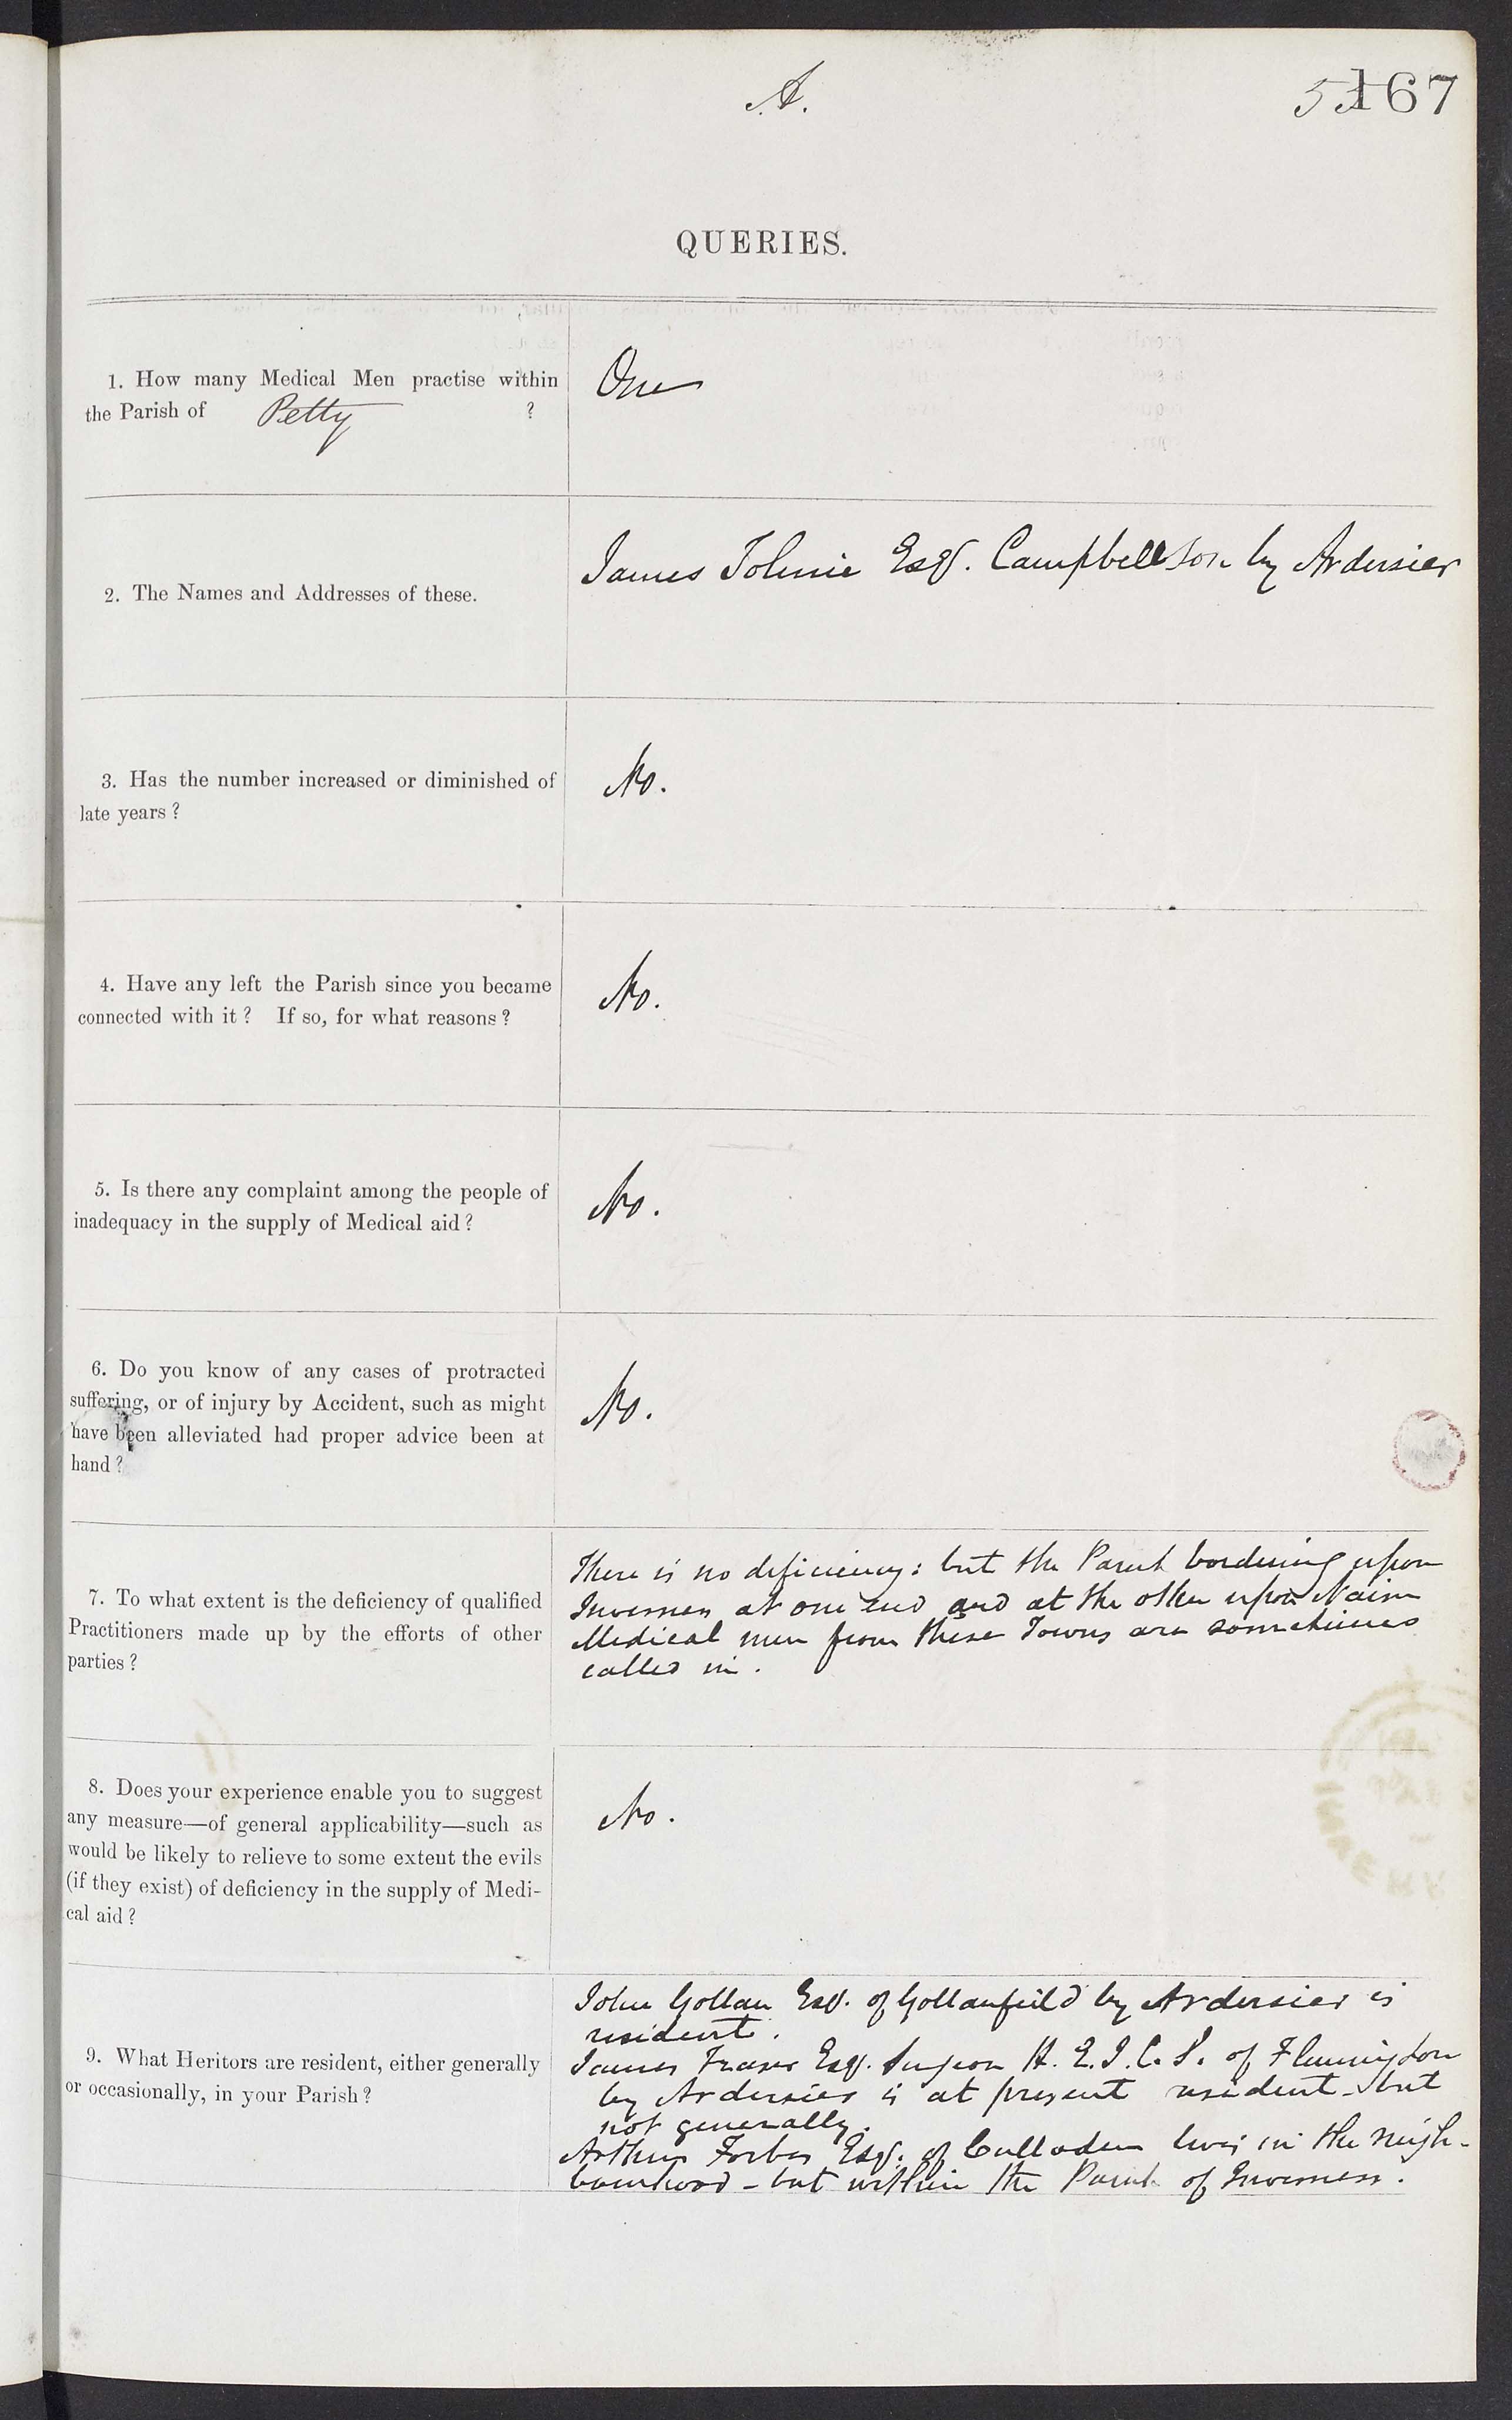 A.
167
QUERIES.
1. How many Medical Men practise within
the Parish of Petty ?
One
2. The Names and Addresses of these.
James Tolmie Esqr. Campbellton by Ardersier
3. Has the number increased or diminished of
late years ?
No.
4. Have any left the Parish since you became
connected with it ? If so, for what reasons ?
No.
5. Is there any complaint among the people of
inadequacy in the supply of Medical aid ?
No.
6. Do you know of any cases of protracted
suffering, or of injury by Accident, such as might
have been alleviated had proper advice been at
hand ?
No.
7. To what extent is the deficiency of qualified
Practitioners made up by the efforts of other
parties ?
There is no deficiency: but the Parish bordering upon
Inverness at one end and at the other upon Nairn
Medical men from these Towns are sometimes
called in.
8. Does your experience enable you to suggest
any measure—of general applicability—such as
would be likely to relieve to some extent the evils
(if they exist) of deficiency in the supply of Medi-
cal aid ?
No.
9. What Heritors are resident, either generally
or occasionally, in your Parish ?
John Gollan Esqr. of Gollanfeild by Ardersier is
resident.
James Fraser Esqr. Surgeon H.E.I.C.S. of Flemington
by Ardersier is at present resident - but
not generally.
Arthur Forbes Esqr. of Culloden lives in the neigh-
bourhood - but within the Parish of Inverness.